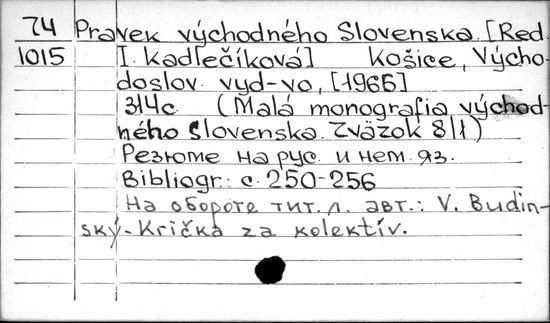 74 Pravek východného Slovenska. [Red.
1015 I. Kadlečíková] Košice, Výcho-
doslov. vyd-vo, [1966]
314с (Malá monografia východ-
ného Slovenska. Zväzok 8/1)
Резюме на рус. и нем. яз.
Bibliogr.: с. 250-256
На обороте тит. л. авт.: V. Budin-
ský-Krička za kolektív.